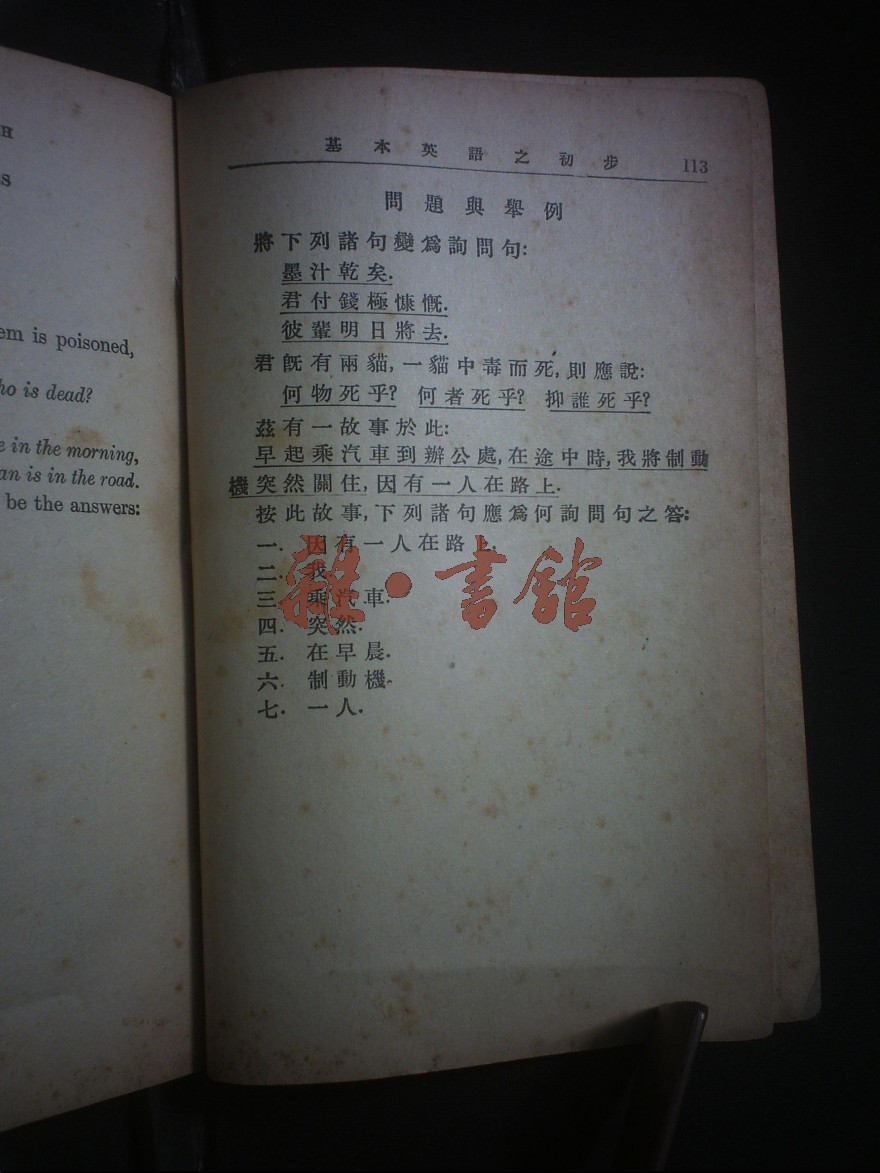 H
s
em is poisoned,
ho is dead?
e in the morning,
an is in the road.
be the answers:
基本英語之初步 113
問題與舉例
將下列諸句變爲詢問句:
墨汁乾矣.
君付錢極慷慨.
彼輩明日將去.
君旣有兩貓,一貓中毒而死,則應說:
何物死乎? 何者死乎? 抑誰死乎?
茲有一故事於此:
早起乘汽車到辦公處,在途中時,我將制動
機突然關住,因有一人在路上.
按此故事,下列諸句應爲何詢問句之答:
一. 因有一人在路上.
二. 我.
三. 乘汽車.
四. 突然.
五. 在早晨.
六. 制動機.
七. 一人.
雜·書館